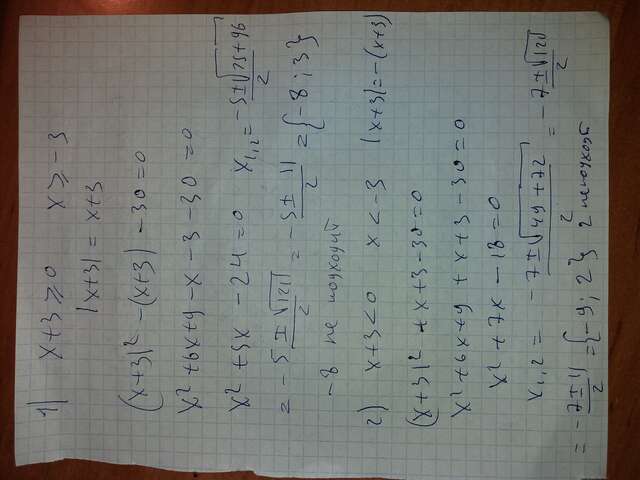 1) x+3⩾0 x⩾-3
|x+3| = x+3
(x+3)² - (x+3) - 30=0
x²+6x+9-x-3-30=0
x²+5x-24=0 x₁,₂= -5±√25+96 / 2
= -5±√121 / 2 = -5±11 / 2 = {-8; 3}
-8 не подходит
2) x+3<0 x<-3 |x+3|=-(x+3)
(x+3)²+x+3-30=0
x²+6x+9+x+3-30=0
x²+7x-18=0
x₁,₂ = -7±√49+72 / 2 = -7±√121 / 2
= -7±11 / 2 = {-9; 2} 2 не подходит